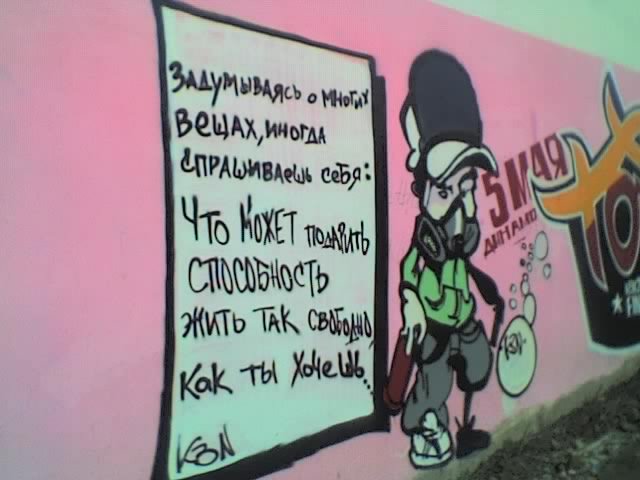 Задумываясь о многих
вещах, иногда
спрашиваешь себя:
Что может подарить
способность
жить так свободно,
как ты хочешь...
КЗN
5 МАЯ
ДИНАМО